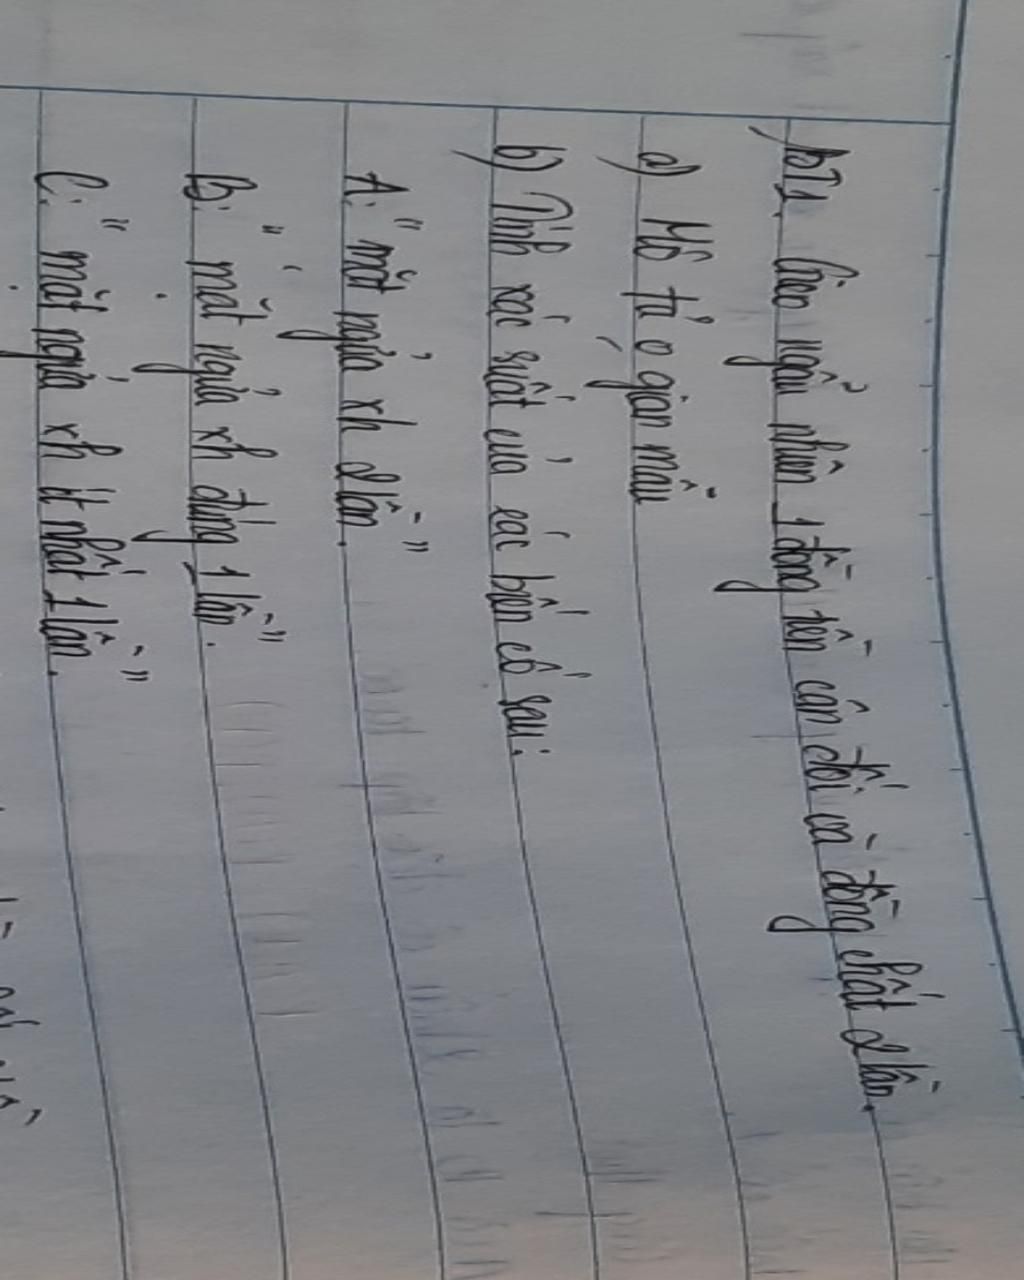 BT1. Gieo ngẫu nhiên 1 đồng tiền cân đối và đồng chất 2 lần.
a) Mô tả o gian mẫu
b) Tính xác suất của các biến cố sau:
A: "mặt ngửa xh 2 lần."
B: "mặt ngửa xh đúng 1 lần."
C: "mặt ngửa xh ít nhất 1 lần."